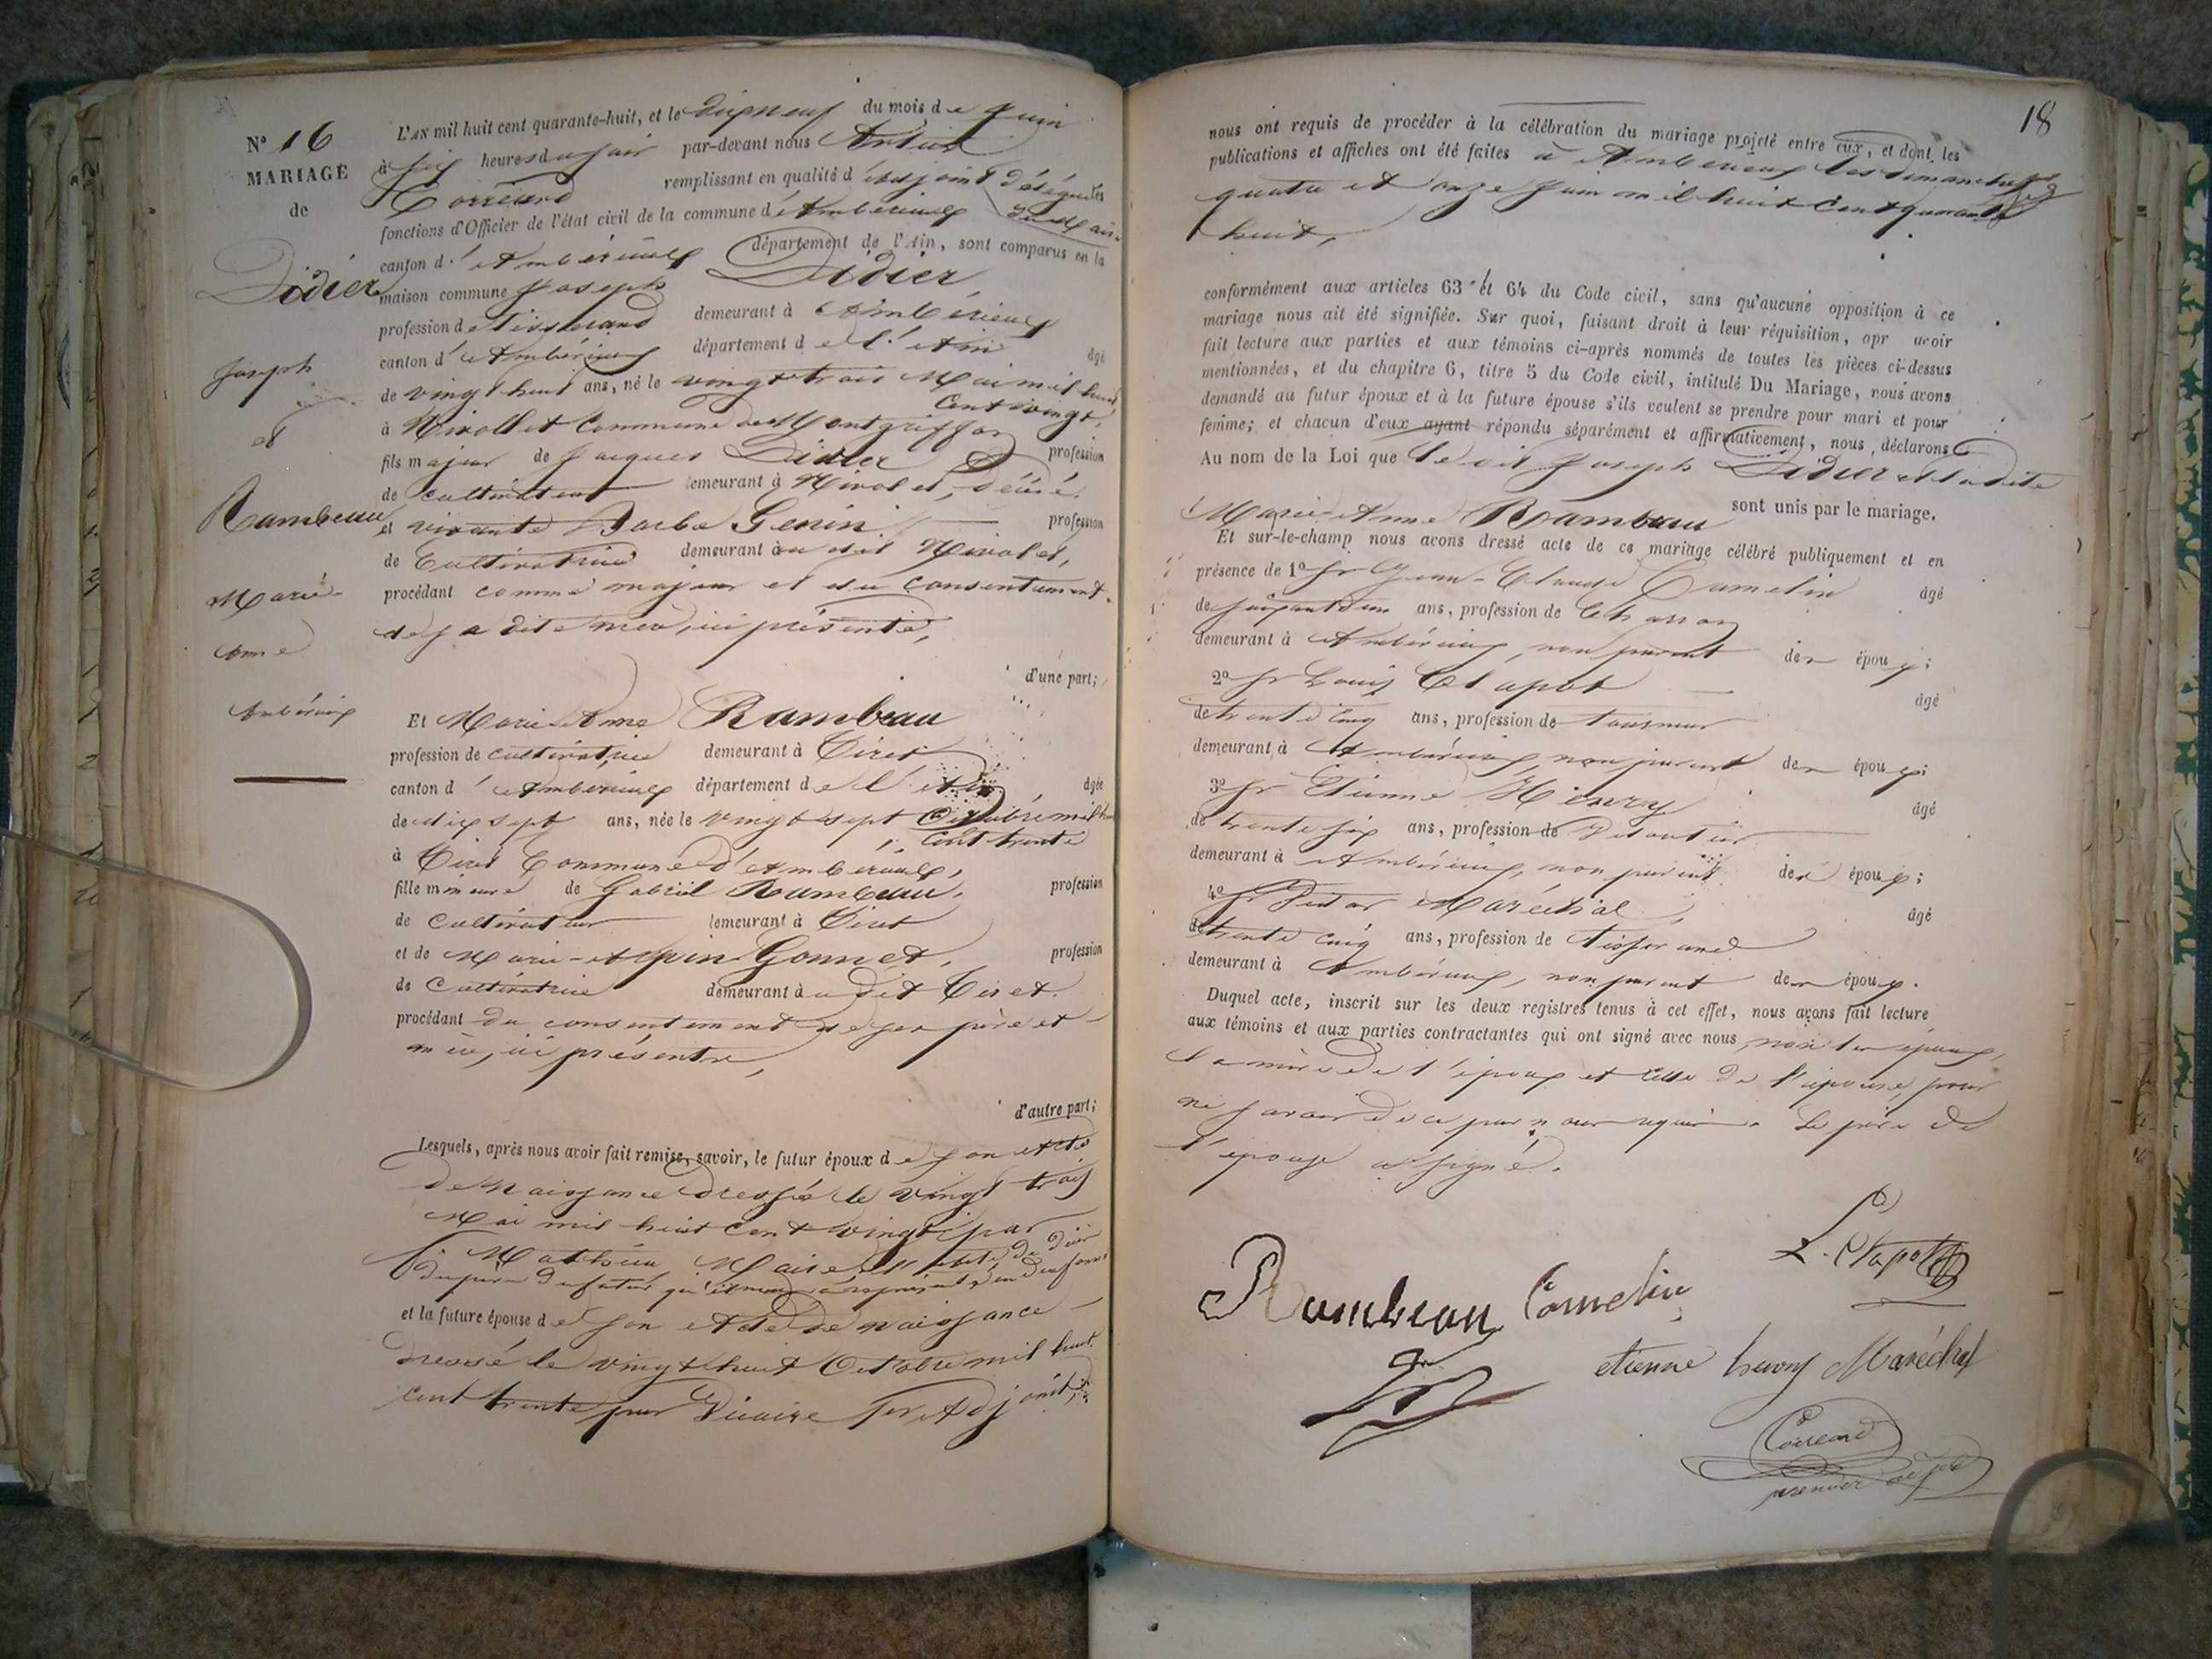 N° 16
MARIAGE
de
Didier
Joseph
et
Rambeau
Marie-
Anne
Ambérieux
L'AN mil huit cent quarante-huit, et le dixneuf du mois de Juin
à six heures du soir par-devant nous
remplissant en qualité d'Adjoint délégué les
fonctions d'Officier de l'état civil de la commune d'Ambérieux
canton d'Ambérieux département de l'Ain, sont comparus en la
maison commune Joseph Didier
profession de Tisserand demeurant à Ambérieux
canton d'Ambérieux département de l'Ain âgé
de vingt huit ans, né le vingt trois Mai mil huit
cent vingt,
à Nivollet Commune de Montgriffon
fils majeur de Jacques Didier profession
de cultivateur demeurant à Nivolet,
et vivante Barbe Genin profession
de Cultivatrice demeurant au dit Nivolet,
procédant comme majeur et du consentement
de sa dite mère, ici présente,
d'une part;
Et Marie Anne Rambeau
profession de cultivatrice demeurant à Tiret
canton d'Ambérieux département de l'Ain âgée
de dix sept ans, née le vingt sept Octobre mil huit
cent trente
à Tiret Commune d'Ambérieux,
fille mineure de Gabriel Rambeau, profession
de Cultivateur demeurant à Tiret
et de Marie-Alpin Gonnet, profession
de Cultivatrice demeurant audit Tiret.
procédant du consentement de ses père et
mère, ici présents,
d'autre part;
Lesquels, après nous avoir fait remise, savoir, le futur époux de son Acte
de Naissance dressé le vingt trois
Mai mil huit cent vingt par
Mathieu Maire
du père du futur
et la future épouse de son Acte de naissance
dressé le vingt huit Octobre mil huit
cent trente par Dicaire 1er Adjoint;
18
nous ont requis de procéder à la célébration du mariage projeté entre eux, et dont les
publications et affiches ont été faites à Ambérieux les dimanches
quatre et onze Juin mil huit cent quarante
huit,
conformément aux articles 63 et 64 du Code civil, sans qu'aucune opposition à ce
mariage nous ait été signifiée. Sur quoi, faisant droit à leur réquisition, apr avoir
fait lecture aux parties et aux témoins ci-après nommés de toutes les pièces ci-dessus
mentionnées, et du chapitre 6, titre 5 du Code civil, intitulé Du Mariage, nous avons
demandé au futur époux et à la future épouse s'ils veulent se prendre pour mari et pour
femme; et chacun d'eux ayant répondu séparément et affirmativement, nous déclarons
Au nom de la Loi que le dit Joseph Didier et la dite
Marie Anne Rambeau sont unis par le mariage.
Et sur-le-champ nous avons dressé acte de ce mariage célébré publiquement et en
présence de 1° Sr Jean-Claude Camelin âgé
de ans, profession de Charron
demeurant à Ambérieux, non parent des époux;
2° Sr Louis Clapot âgé
de trente cinq ans, profession de tourneur
demeurant à Ambérieux, non parent des époux;
3° Sr Etienne Henry âgé
de trente six ans, profession de
demeurant à Ambérieux, non parent des époux;
4° Sr Maréchal âgé
de trente cinq ans, profession de Tisserand
demeurant à Ambérieux, non parent des époux.
Duquel acte, inscrit sur les deux registres tenus à cet effet, nous avons fait lecture
aux témoins et aux parties contractantes qui ont signé avec nous non les époux,
la mère de l'époux et celle de l'épouse, pour
ne savoir de ce par nous requis. Le père de
l'épouse a signé.
L. Clapot
Rambeau Camelin
etienne henry Maréchal
premier adjt